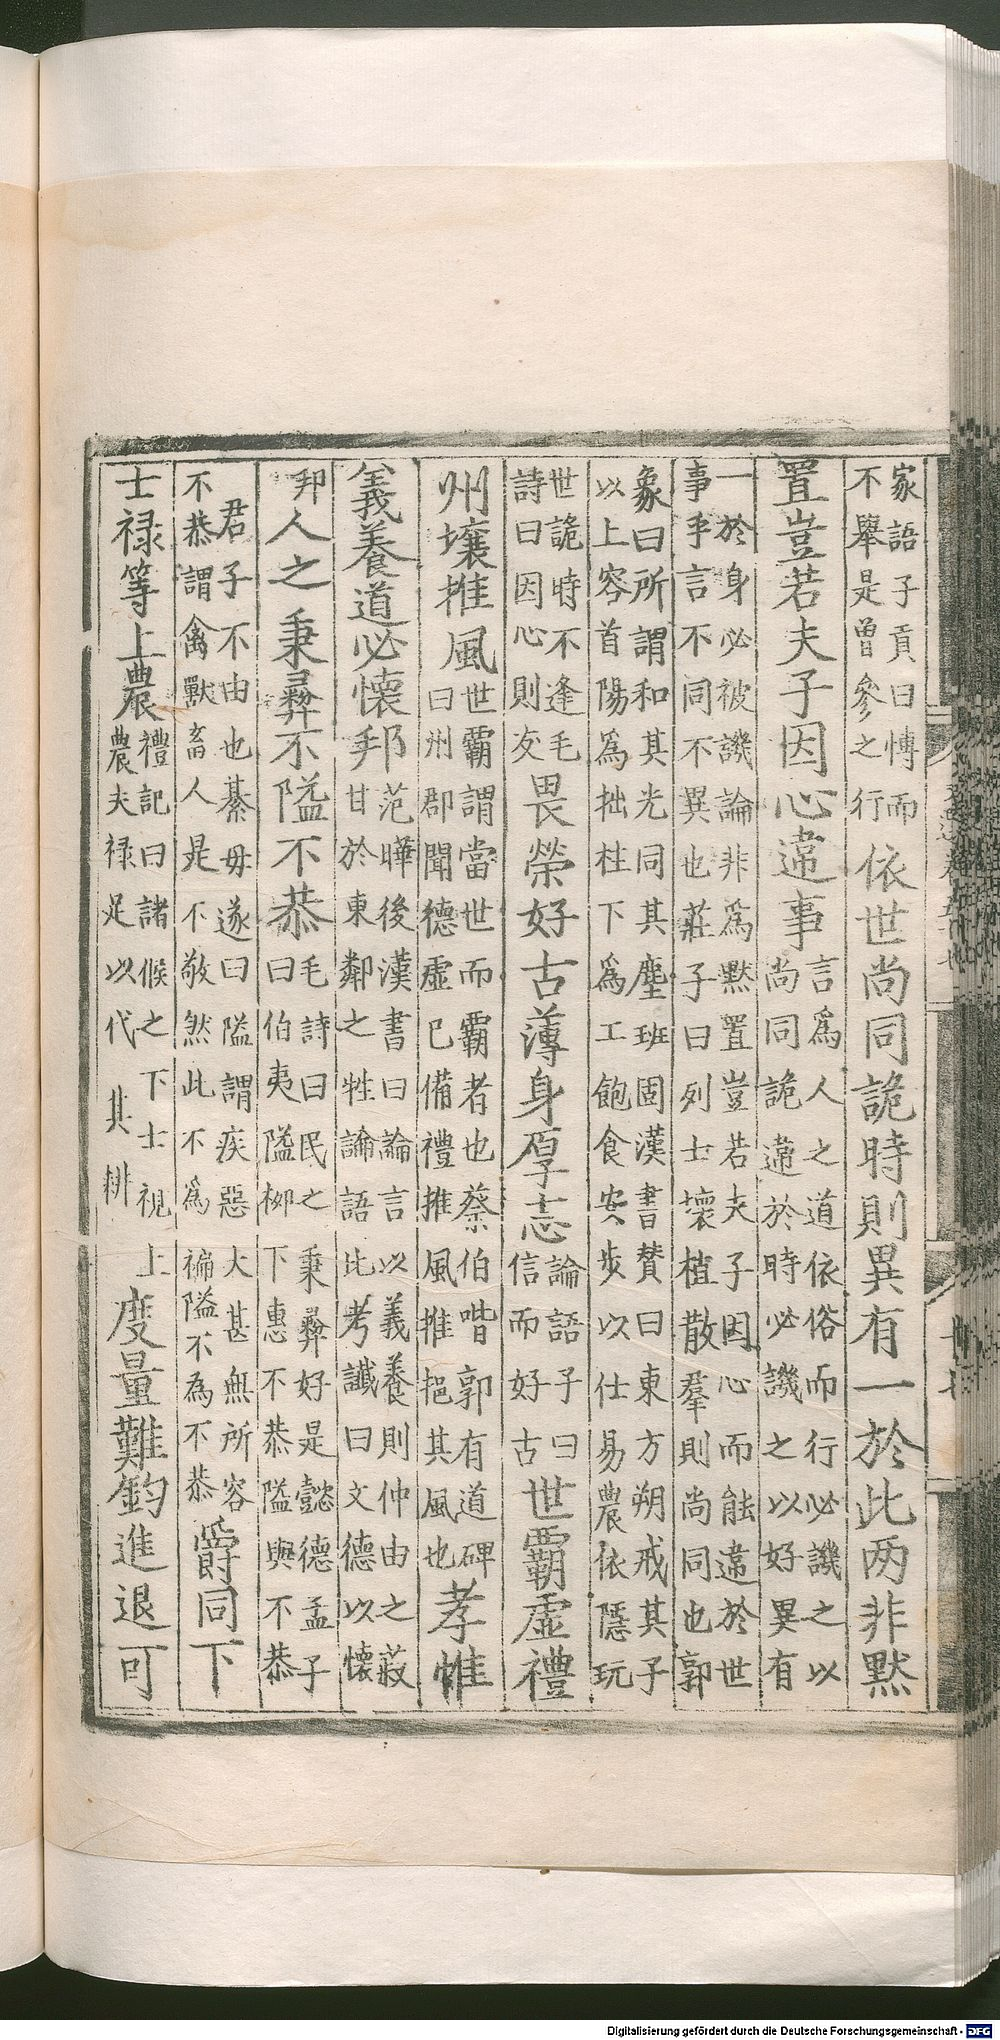 家語子貢曰慱而
不舉是曽參之行
依世尚同詭時則異有一於此两非黙
置豈若夫子因心違事
言爲人之道依俗而行必譏之以
尚同詭違於時必譏之以好異有
一於身必被譏論非爲黙置豈若夫子因心而能違於世
事乎言不同不異也莊子曰列士壞植散羣則尚同也郭
象曰所謂和其光同其塵班固漢書賛曰東方朔戒其子
以上容首陽爲拙柱下爲工飽食安步以仕易農依隱玩
世詭時不逢毛
詩曰因心則友
畏榮好古薄身厚志
論語子曰
信而好古
世霸虛禮
州壤推風
世霸謂當世而霸者也蔡伯喈郭有道碑
曰州郡聞德虛已備禮推風推挹其風也
孝惟
義養道必懐邦
范曄後漢書曰論言以義養則仲由之菽
甘於東鄰之牲論語比考讖曰文德以懐
邦
人之秉彝不隘不恭
毛詩曰民之秉彝好是懿德孟子
曰伯夷隘栁下惠不恭隘與不恭
君子不由也綦毋邃曰隘謂疾惡大甚無所容
不恭謂禽獸畜人是不敬然此不爲褊隘不為不恭
爵同下
士禄等上農
禮記曰諸候之下士視上
農夫禄足以代其耕
度量難鈞進退可
Digitalisierung gefördert durch die Deutsche Forschungsgemeinschaft - DFG